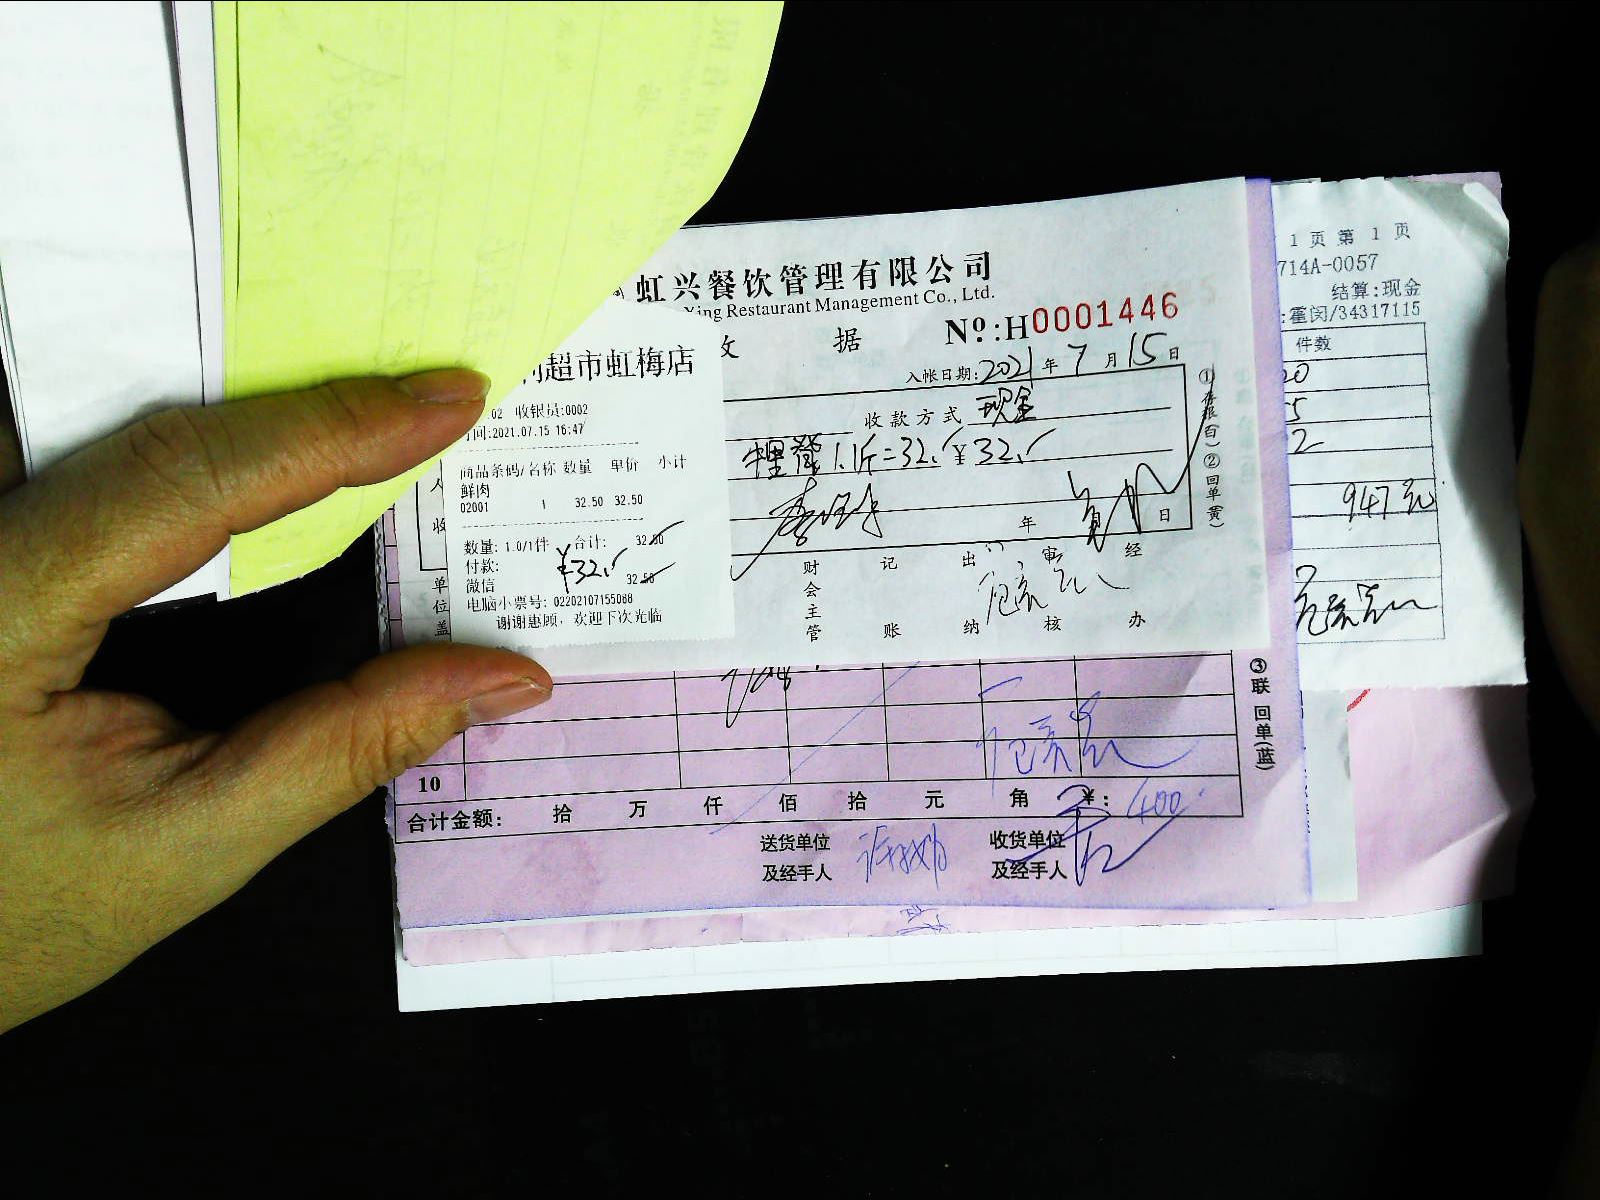 虹兴餐饮管理有限公司
Xing Restaurant Management Co., Ltd.
据
Nº:H0001446
入帐日期:2021年7月15日
收款方式 现金
1.1斤=32.
¥32.
年
日
财会主管
记账
出纳
审核
经办
单位盖
①存根(白)②回单(黄)
超市虹梅店
.02 收银员:0002
间:2021.07.15 16:47
商品条码/名称 数量 单价 小计
鲜肉
02001 1 32.50 32.50
数量: 1.0/1件 合计: 32.50
付款:
¥32.
微信 32.50
电脑小票号: 02202107155068
谢谢惠顾，欢迎下次光临
1 页 第 1 页
714A-0057
结算:现金
:霍闵/34317115
件数
20
5
2
947元
10
合计金额: 拾 万 仟 佰 拾 元 角 ¥: 400
送货单位
及经手人
收货单位
及经手人
③联 回单(蓝)